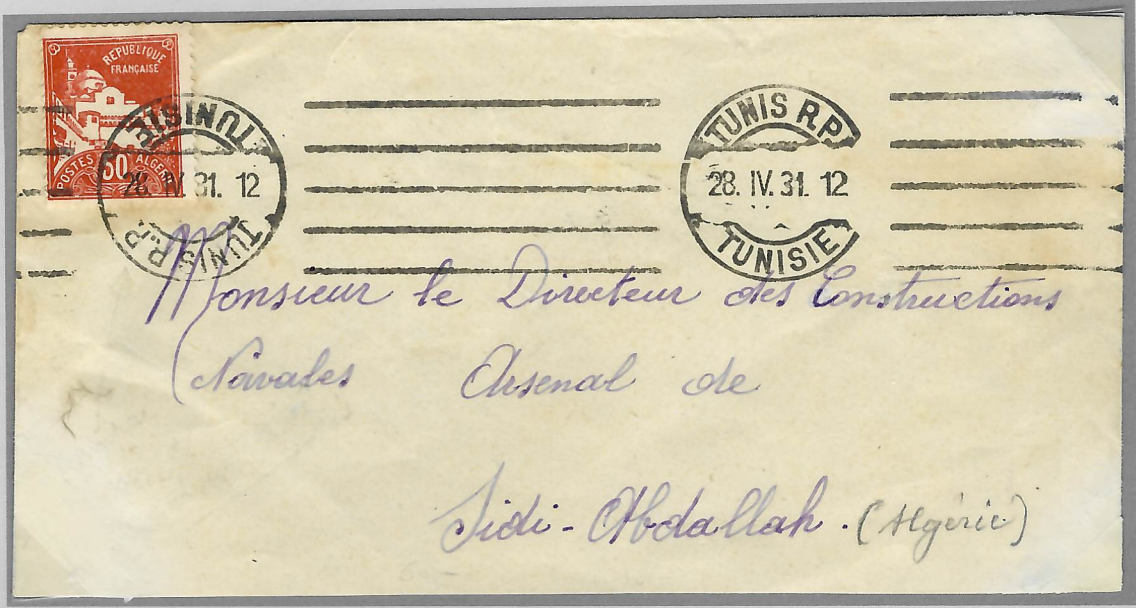 REPUBLIQUE
FRANÇAISE
POSTES 50 ALGERIE
TUNIS R.P.
28. IV. 31. 12
TUNISIE
TUNIS R.P.
28. IV. 31. 12
TUNISIE
Monsieur le Directeur des Constructions
Navales Arsenal de
Sidi-Abdallah. (Algérie)